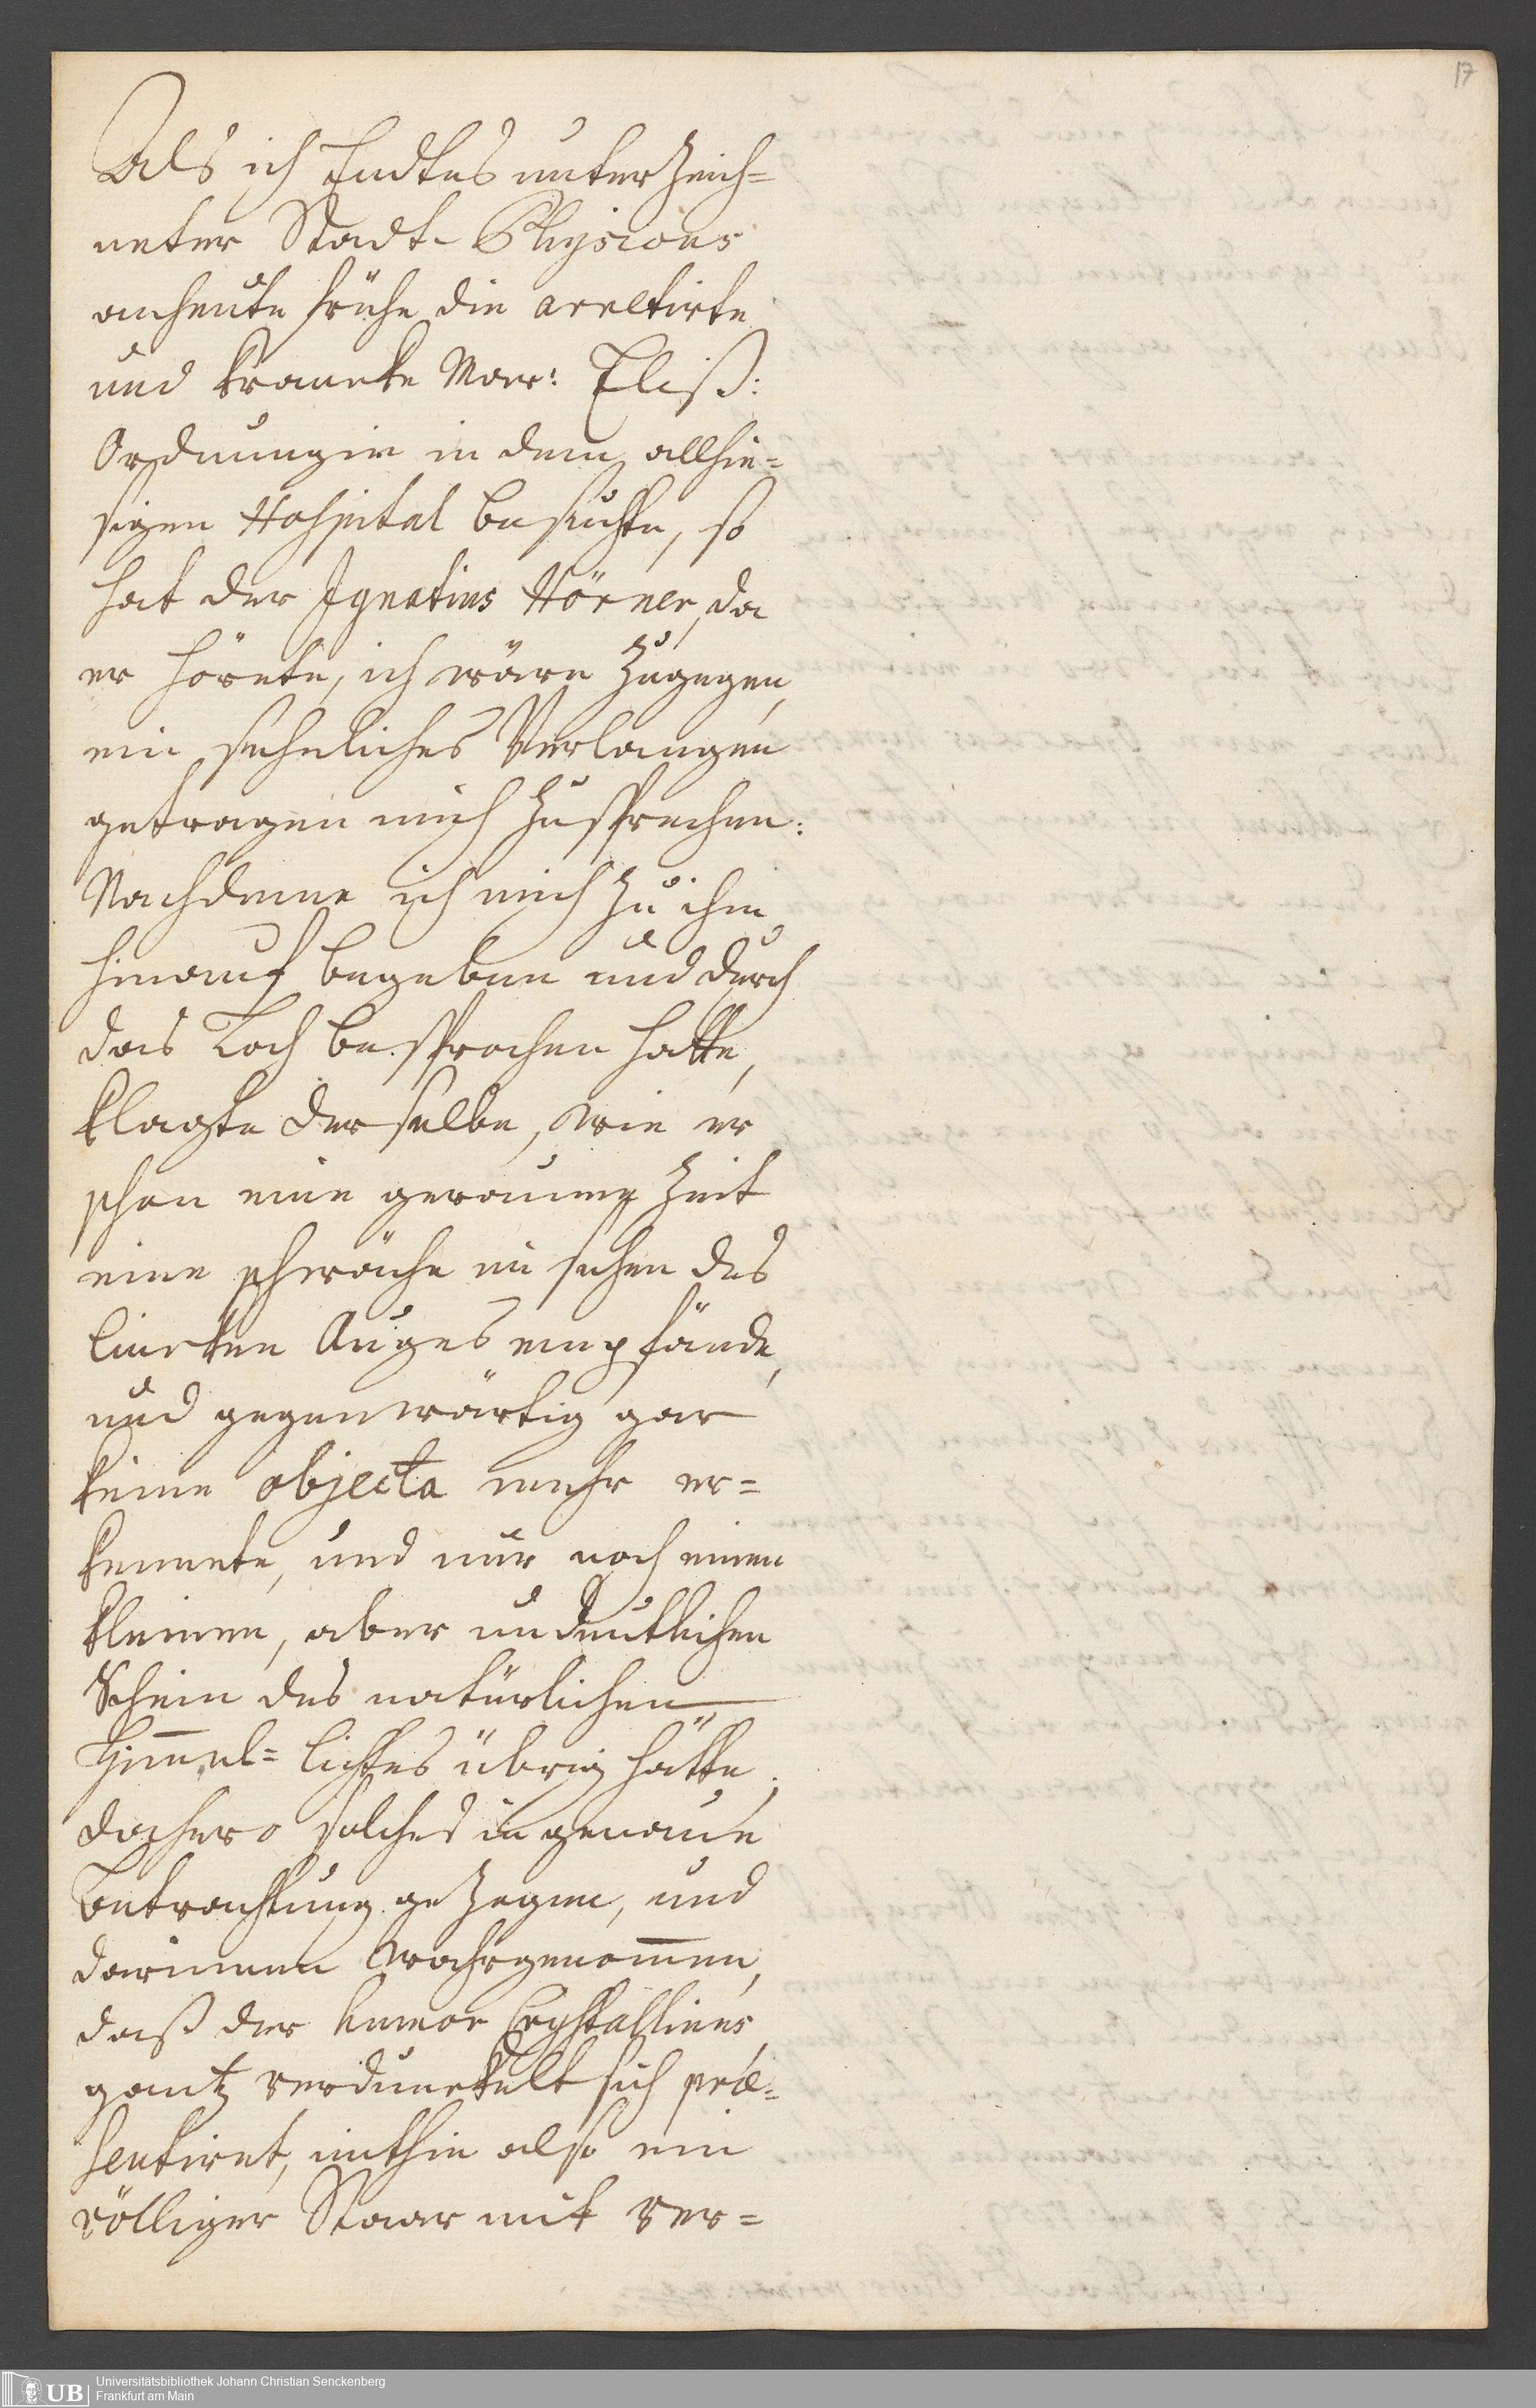 17
Als ich Endtes unterzeich=
neter Stadt-Physicus
anheute frühe die arretirte
und krancke Mar: Elis:
Ordnungin in dem allhie=
sigen Hospital besuchte, so
hat der Ignatius Hörner, da
er hörete, ich wäre zugegen,
ein sehnliches Verlangen
getragen mich zusprechen:
Nachdeme ich mich zu ihm
hinauf begeben und durch
das Loch besprochen hatte,
klagte derselbe, wie er
schon eine geraume Zeit
eine schwäche im sehen des
lincken Auges empfände,
und gegenwärtig gar
keine objecta mehr er=
kennete, und nur noch einen
kleinen, aber undeutlichen
Schein des natürlichen
Him̄el= lichtes übrig hätte,
dachero solches in genaue
Betrachtung gezogen, und
darinnen wahrgenom̄en,
daß der humor Crystallinus
gantz verdunckelt sich præ=
sentiret, mithin also ein
völliger Staar mit ver=
UB
Universitätsbibliothek Johann Christian Senckenberg
Frankfurt am Main